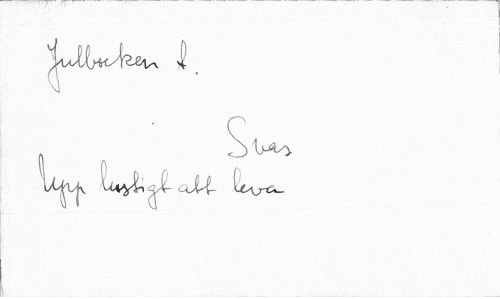 Julbocken t.
Svas
Upp lustigt att leva